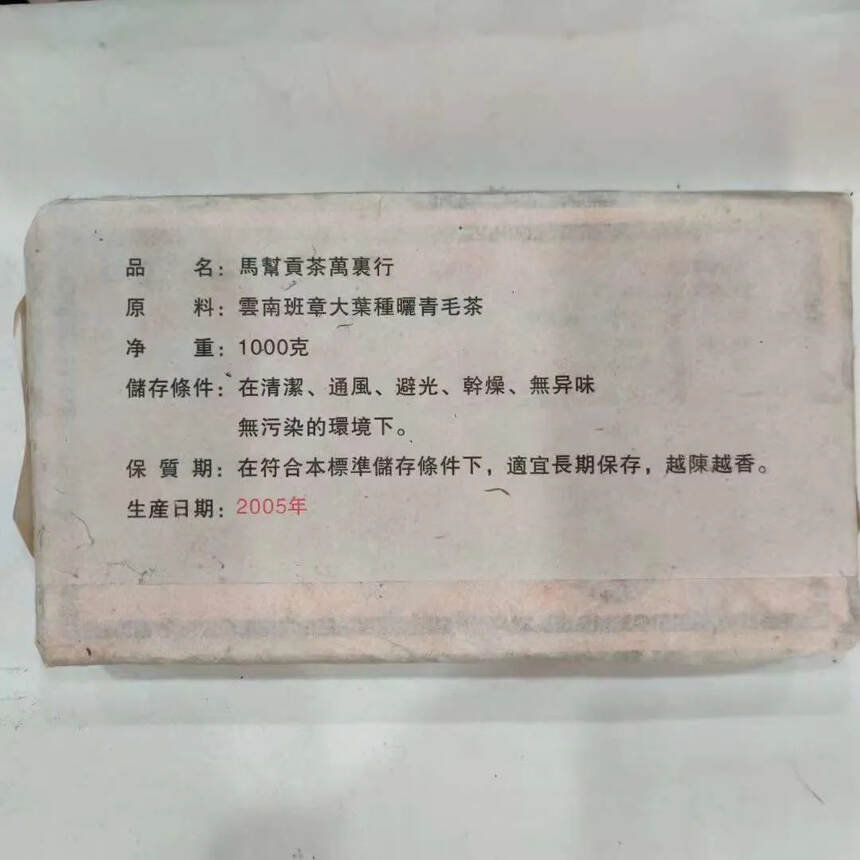 品　　名：馬幫貢茶萬裏行
原　　料：雲南班章大葉種曬青毛茶
净　　重：1000克
儲存條件：在清潔、通風、避光、幹燥、無异味
無污染的環境下。
保 質 期：在符合本標準儲存條件下，適宜長期保存，越陳越香。
生産日期：2005年